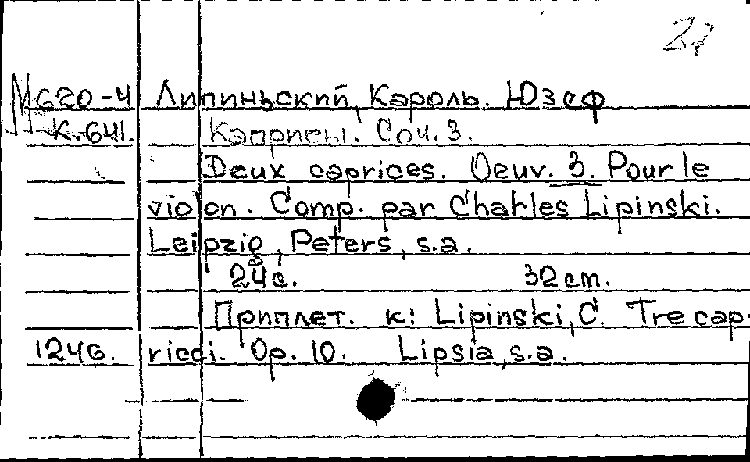 27
М620-4 Липиньский, Кароль. Юзеф
К.641. Каприсы. Соч. 3.
Deux caprices. Oeuv. 3. Pour le
violon. Comp. par Charles Lipinski.
Leipzig, Peters, s.a.
24с. 32 cm.
Приплет. к: Lipinski, C. Tre cap-
124б. ricci. Op. 10. Lipsia, s.a.